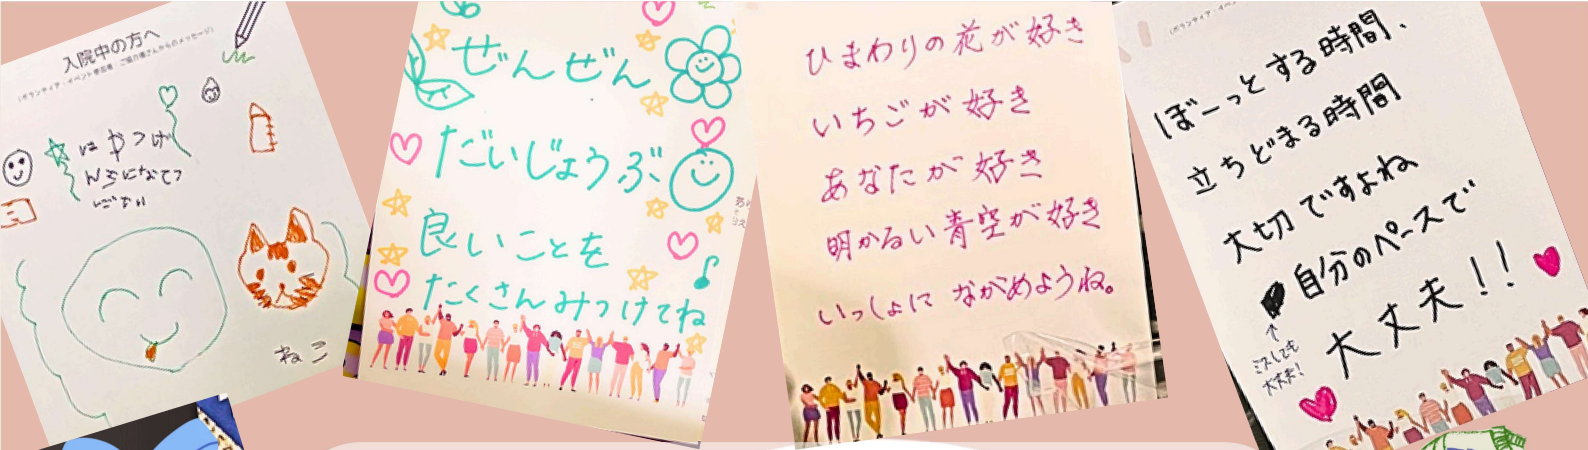 入院中の方へ
(ボランティア・イベント参加者・ご協力者さんからのメッセージ)
はやつげ
んきになてつ
ください
ねこ
ぜんぜん
だいじょうぶ
良いことを
たくさんみつけてね
ひまわりの花が好き
いちごが好き
あなたが好き
明かるい青空が好き
いっしょに ながめようね。
(ボランティア・イベ
ぼーっとする時間、
立ちどまる時間
大切ですよね
自分のペースで
大丈夫!!
↑
ミスしても
大丈夫!